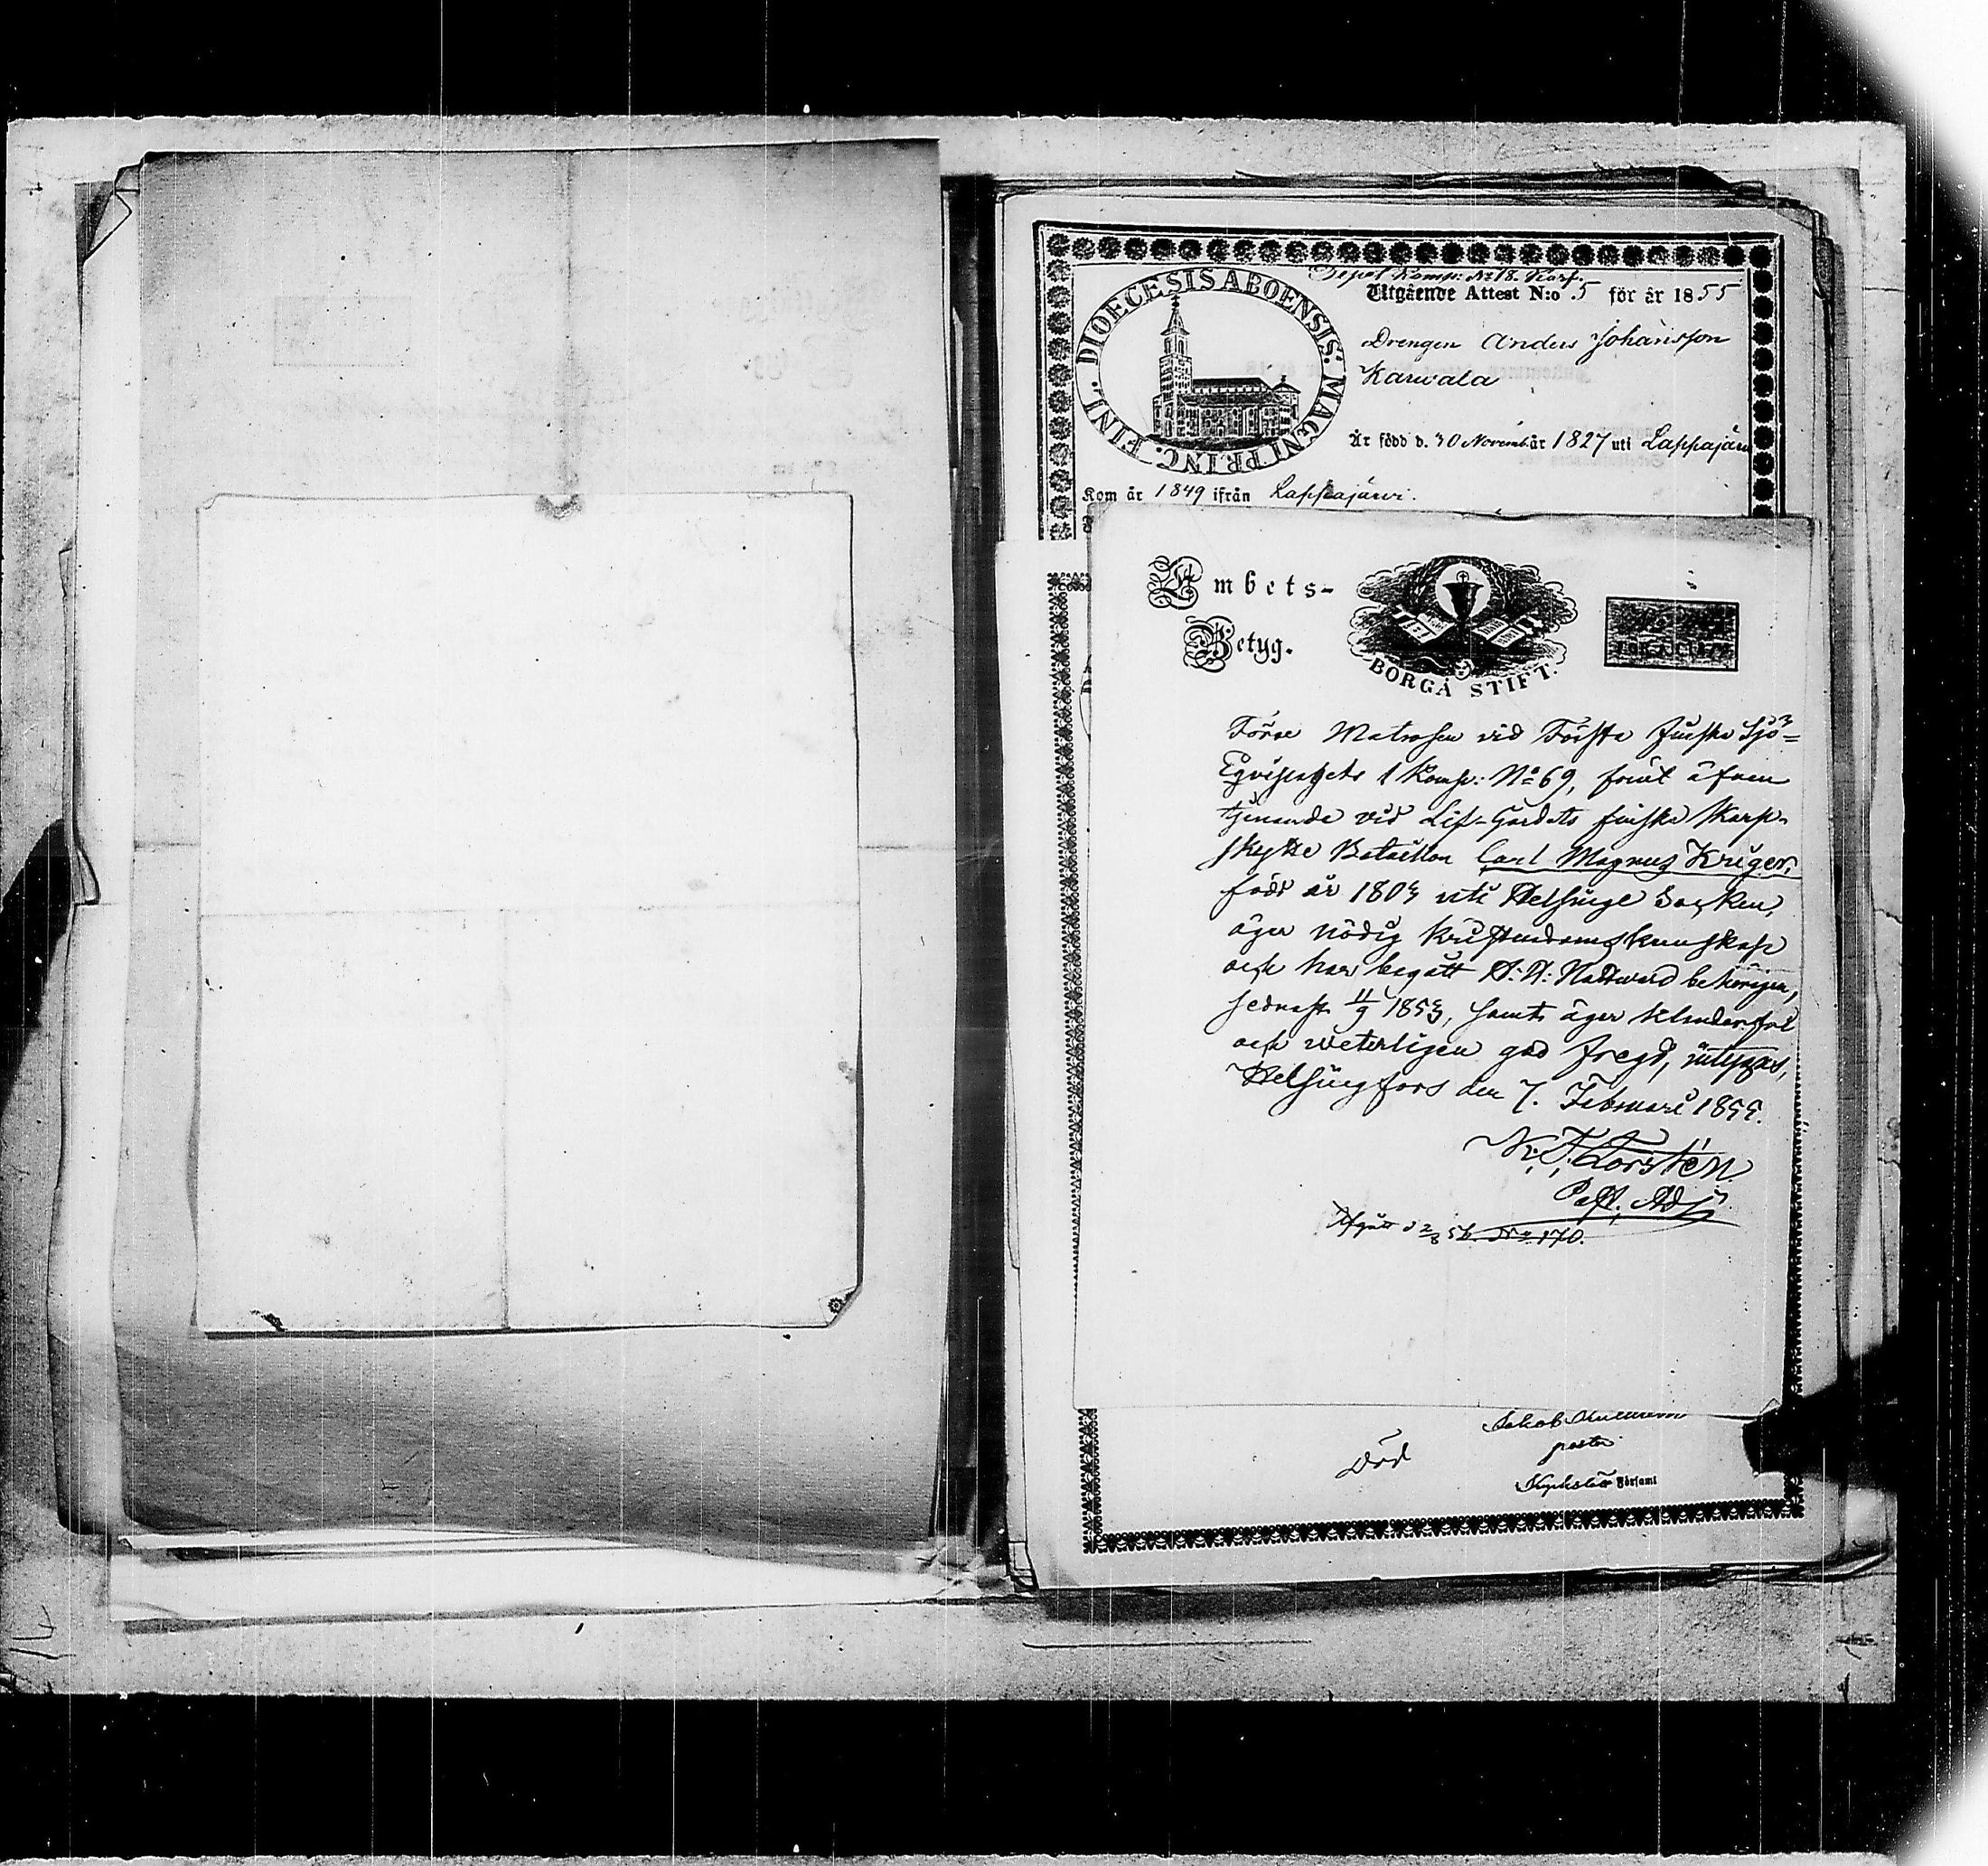 Depot Komp: No 18. Korp.
DIOECESIS ABOENSIS. MAGNI PRINC. FINL.
Utgående Attest N:o 5 för år 1855
Drengen Anders Johansson
Karwala
Är född d. 30 Novemb. år 1827 uti Lappajärvi
Kom år 1849 ifrån Lappajärvi.
Embets-
Betyg.
BORGÅ STIFT.
Förre Matrosen vid Första Finska Sjö=
Equipagets 1 Komp: No 69, samt äfven
tjenande vid Lif-Gardets finska Skarp-
skytte Bataillon Carl Magnus Kriger,
född år 1803 uti Helsinge Socken,
äger nödig kristendomskunskap
och har begått H: H: Nattward behörigen,
sednast 11/9 1853, samt äger klanderfri
och weterligen god frejd, intygas,
Helsingfors den 7. Februari 1855.
K. F. Forstén
Past. Adj.
Afgått d 2/8 56 No 170.
Jakob
pastor
Död
Kyrkslätt Församl